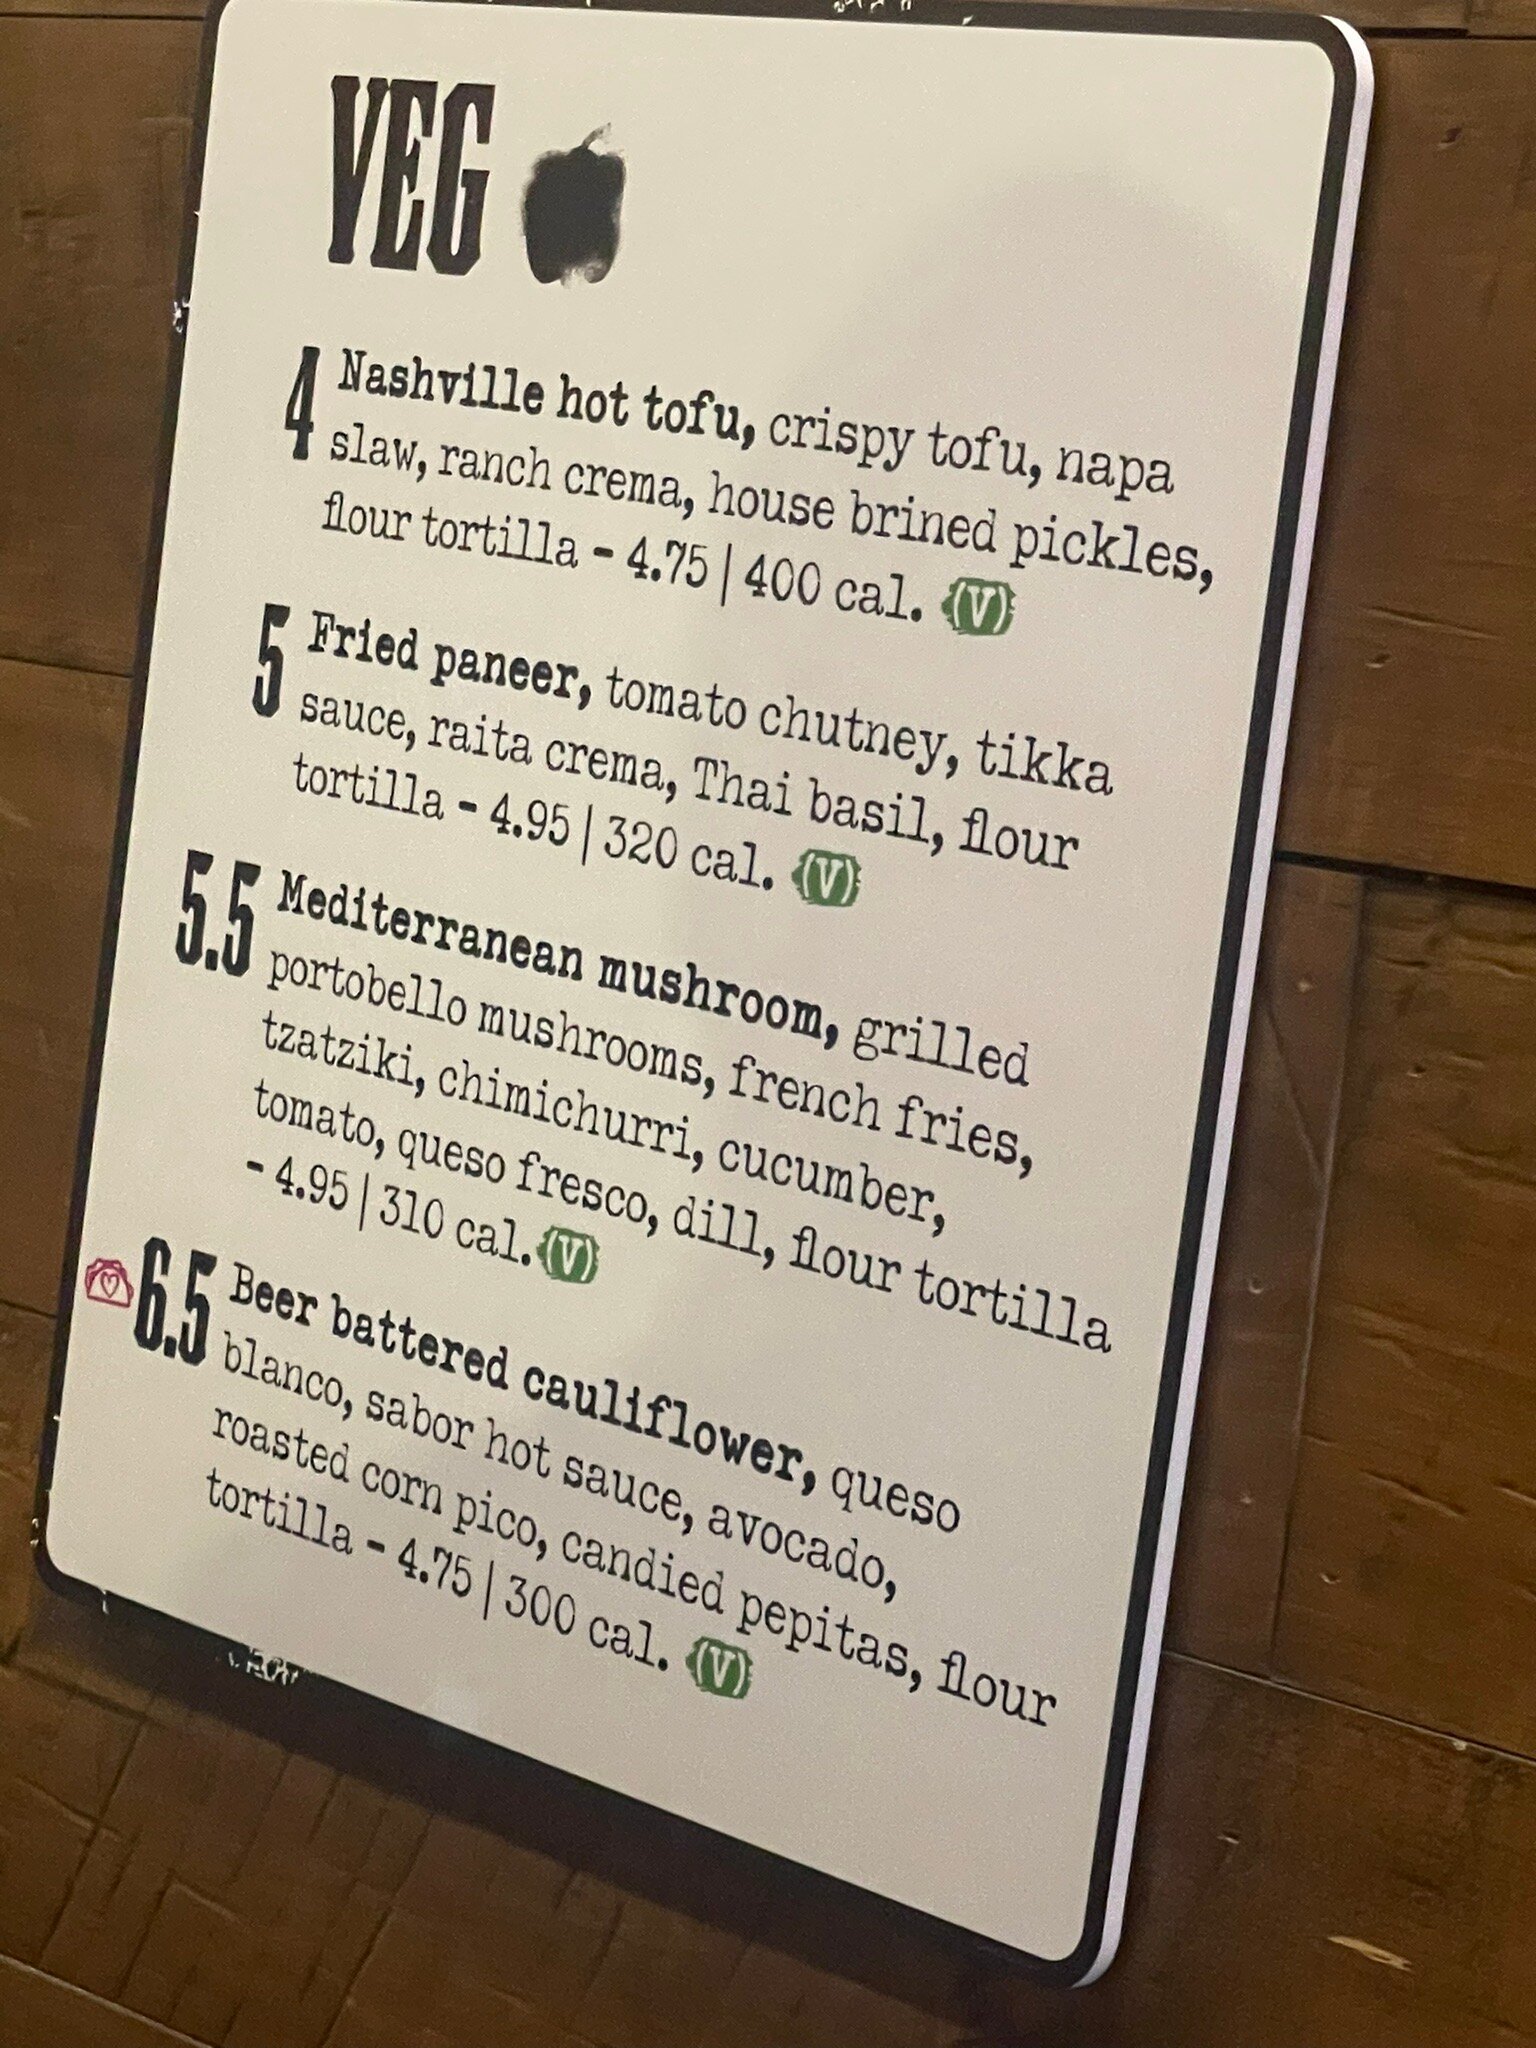 VEG
4 Nashville hot tofu, crispy tofu, napa
slaw, ranch crema, house brined pickles,
flour tortilla - 4.75 | 400 cal. (V)
5 Fried paneer, tomato chutney, tikka
sauce, raita crema, Thai basil, flour
tortilla - 4.95 | 320 cal. (V)
5.5 Mediterranean mushroom, grilled
portobello mushrooms, french fries,
tzatziki, chimichurri, cucumber,
tomato, queso fresco, dill, flour tortilla
- 4.95 | 310 cal. (V)
6.5 Beer battered cauliflower, queso
blanco, sabor hot sauce, avocado,
roasted corn pico, candied pepitas, flour
tortilla - 4.75 | 300 cal. (V)